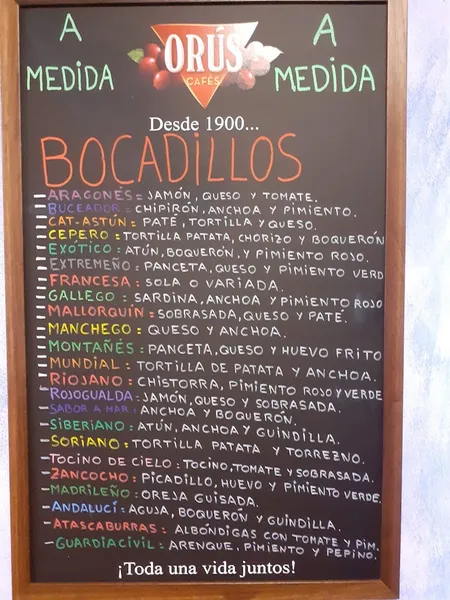 A MEDIDA
ORÚS
CAFÉS
A MEDIDA
Desde 1900...
BOCADILLOS
- ARAGONÉS = JAMÓN, QUESO Y TOMATE.
- BUCEADOR = CHIPIRÓN, ANCHOA Y PIMIENTO.
- CAT-ASTÚN = PATÉ, TORTILLA Y QUESO.
- CEPERO = TORTILLA PATATA, CHORIZO Y BOQUERÓN
- EXÓTICO = ATÚN, BOQUERÓN, Y PIMIENTO ROJO.
- EXTREMEÑO = PANCETA, QUESO Y PIMIENTO VERD
- FRANCESA : SOLA O VARIADA.
- GALLEGO : SARDINA, ANCHOA Y PIMIENTO ROJO
- MALLORQUÍN : SOBRASADA, QUESO Y PATÉ.
- MANCHEGO : QUESO Y ANCHOA.
- MONTAÑÉS : PANCETA, QUESO Y HUEVO FRITO
- MUNDIAL : TORTILLA DE PATATA Y ANCHOA.
- RIOJANO : CHISTORRA, PIMIENTO ROJO Y VERDE
- ROJOGUALDA : JAMÓN, QUESO Y SOBRASADA.
- SABOR A MAR : ANCHOA Y BOQUERÓN.
- SIBERIANO : ATÚN, ANCHOA Y GUINDILLA.
- SORIANO : TORTILLA PATATA Y TORREZNO.
- TOCINO DE CIELO : TOCINO, TOMATE Y SOBRASADA.
- ZANCOCHO : PICADILLO, HUEVO Y PIMIENTO VERDE.
- MADRILEÑO : OREJA GUISADA.
- ANDALUCÍ : AGUJA, BOQUERÓN Y GUINDILLA.
- ATASCABURRAS : ALBÓNDIGAS CON TOMATE Y PIM.
- GUARDIACIVIL : ARENQUE, PIMIENTO Y PEPINO.
¡Toda una vida juntos!